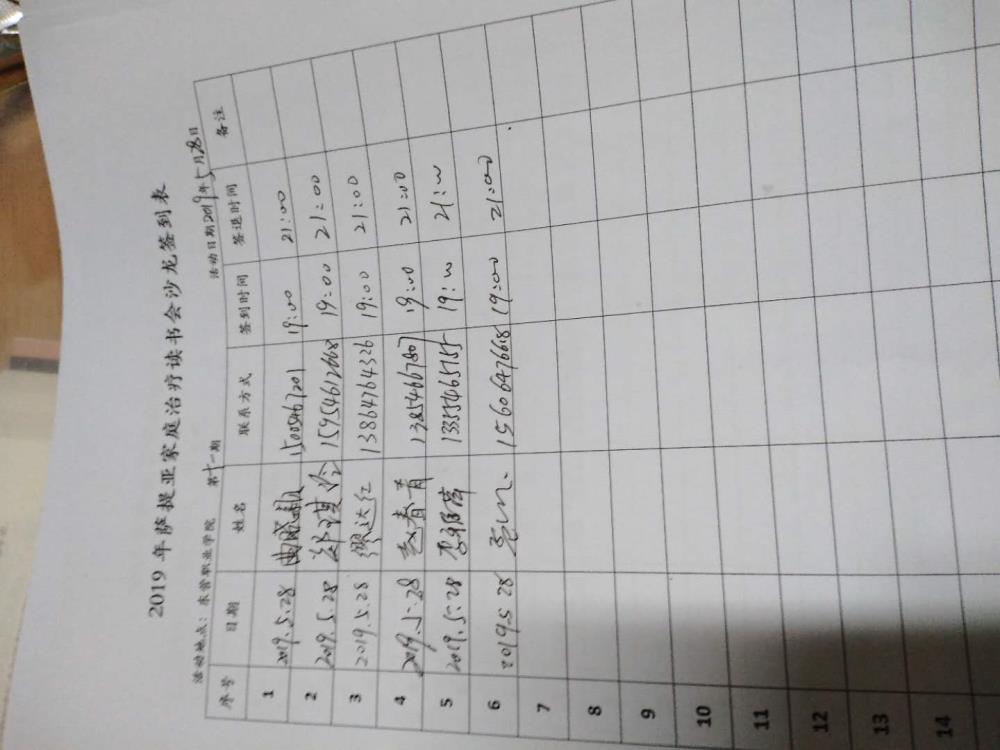 2019 年萨提亚家庭治疗读书会沙龙签到表
活动地点：东营职业学院 第十一期 活动日期2019年5月28日
序号 日期 姓名 联系方式 签到时间 签退时间 备注
1 2019.5.28 19:00 21:00
2 2019.5.28 郑琪伶 15954612668 19:00 21:00
3 2019.5.28 缪达红 13864764326 19:00 21:00
4 2019.5.28 赵春青 13854667807 19:00 21:00
5 2019.5.28 19:00 21:00
6 2019.5.28 15606476618 19:00 21:00
7
8
9
10
11
12
13
14